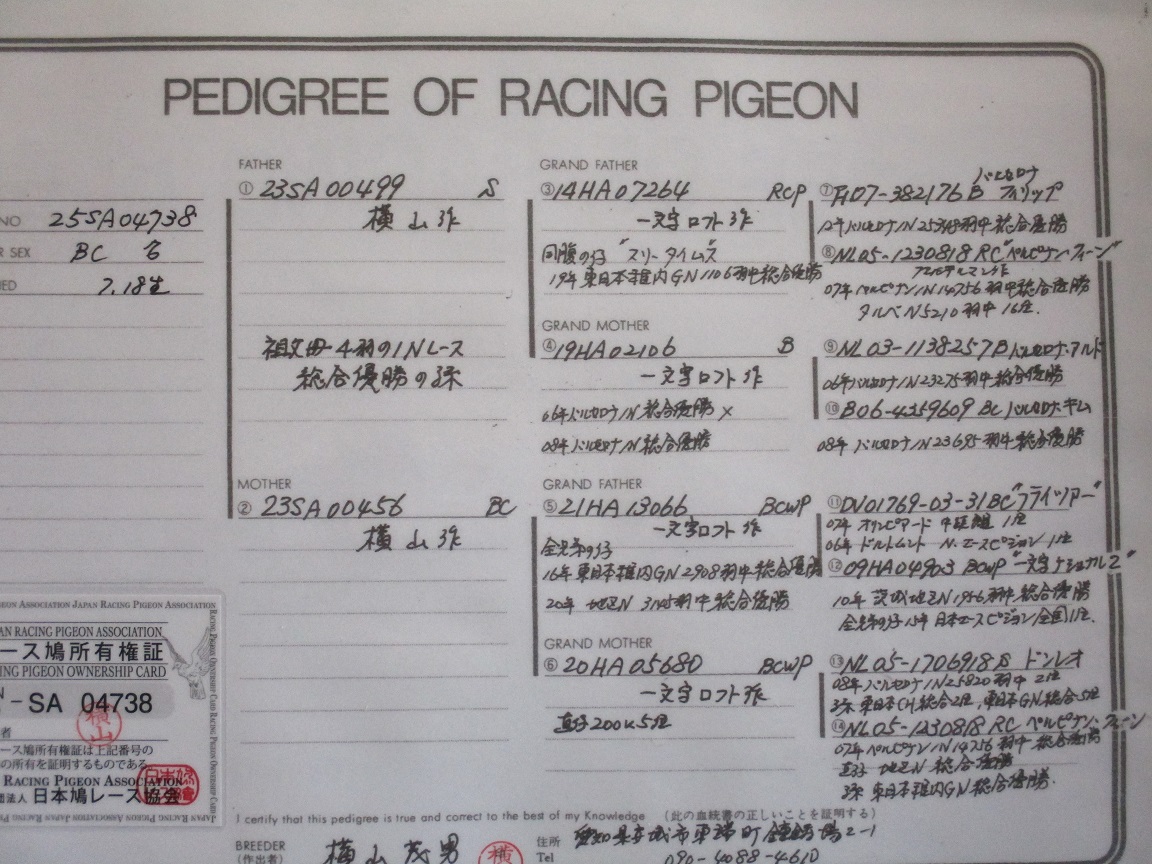 PEDIGREE OF RACING PIGEON
NO 25SA04738
SEX BC ♂
7.18生
FATHER
① 23SA00499 S
横山作
祖父母4羽のINレース
総合優勝の孫
MOTHER
② 23SA00456 BC
横山作
GRAND FATHER
③ 14HA07264 RCP
一文字ロフト作
同腹の仔 "スリータイムズ"
19年東日本稚内GN1106羽中総合優勝
GRAND MOTHER
④ 19HA02106 B
一文字ロフト作
06年バルセロナIN総合優勝×
08年バルセロナIN総合優勝
GRAND FATHER
⑤ 21HA13066 BCWP
一文字ロフト作
全兄弟の仔
16年東日本稚内GN2908羽中総合優勝
20年 地区N 3145羽中総合優勝
GRAND MOTHER
⑥ 20HA05680 BCWP
一文字ロフト作
直仔200K5位
バルセロナ
⑦ 07-382176 B フィリップ
12年バルセロナIN 羽中総合優勝
⑧ NL05-1230818 RC "ペルピナン・クィーン"
07年ペルピナンIN14756羽中総合優勝
タルベN5210羽中16位.
⑨ NL03-1138257 B バルセロナ・アルド
06年バルセロナIN23275羽中総合優勝
⑩ B06-4159609 BC バルセロナ・キム
08年バルセロナIN23695羽中総合優勝
⑪ DV01769-03-31 BC "ブライツアー"
07年オリンピアード 中距離 1位
06年ドルトムント N.エースピジョン1位
⑫ 09HA04903 BCWP "一文字ナショナル2"
10年 茨城地区N1956羽中総合優勝
全兄弟の仔15年日本エースピジョン全国1位.
⑬ NL05-1706918 S ドンレオ
08年バルセロナIN25820羽中2位
3孫 東日本CH総合2位,東日本GN総合5位
⑭ NL05-1230818 RC ペルピナン・クィーン
07年ペルピナンIN14756羽中総合優勝
直仔 地区N 総合優勝
3孫 東日本稚内GN総合優勝.
JAPAN RACING PIGEON ASSOCIATION
AN RACING PIGEON ASSOCIATION
ース鳩所有権証
NG PIGEON OWNERSHIP CARD
-SA 04738
横山
者
ース鳩所有権証は上記番号の
の所有を証明するものである
RACING PIGEON ASSOCIATION
団法人 日本鳩レース協会
I certify that this pedigree is true and correct to the best of my Knowledge (此の血統書の正しいことを証明する)
BREEDER
(作出者) 横山茂男 横
住所 愛知県安城市東端町鐘鋳場2-1
Tel 090-4088-4610